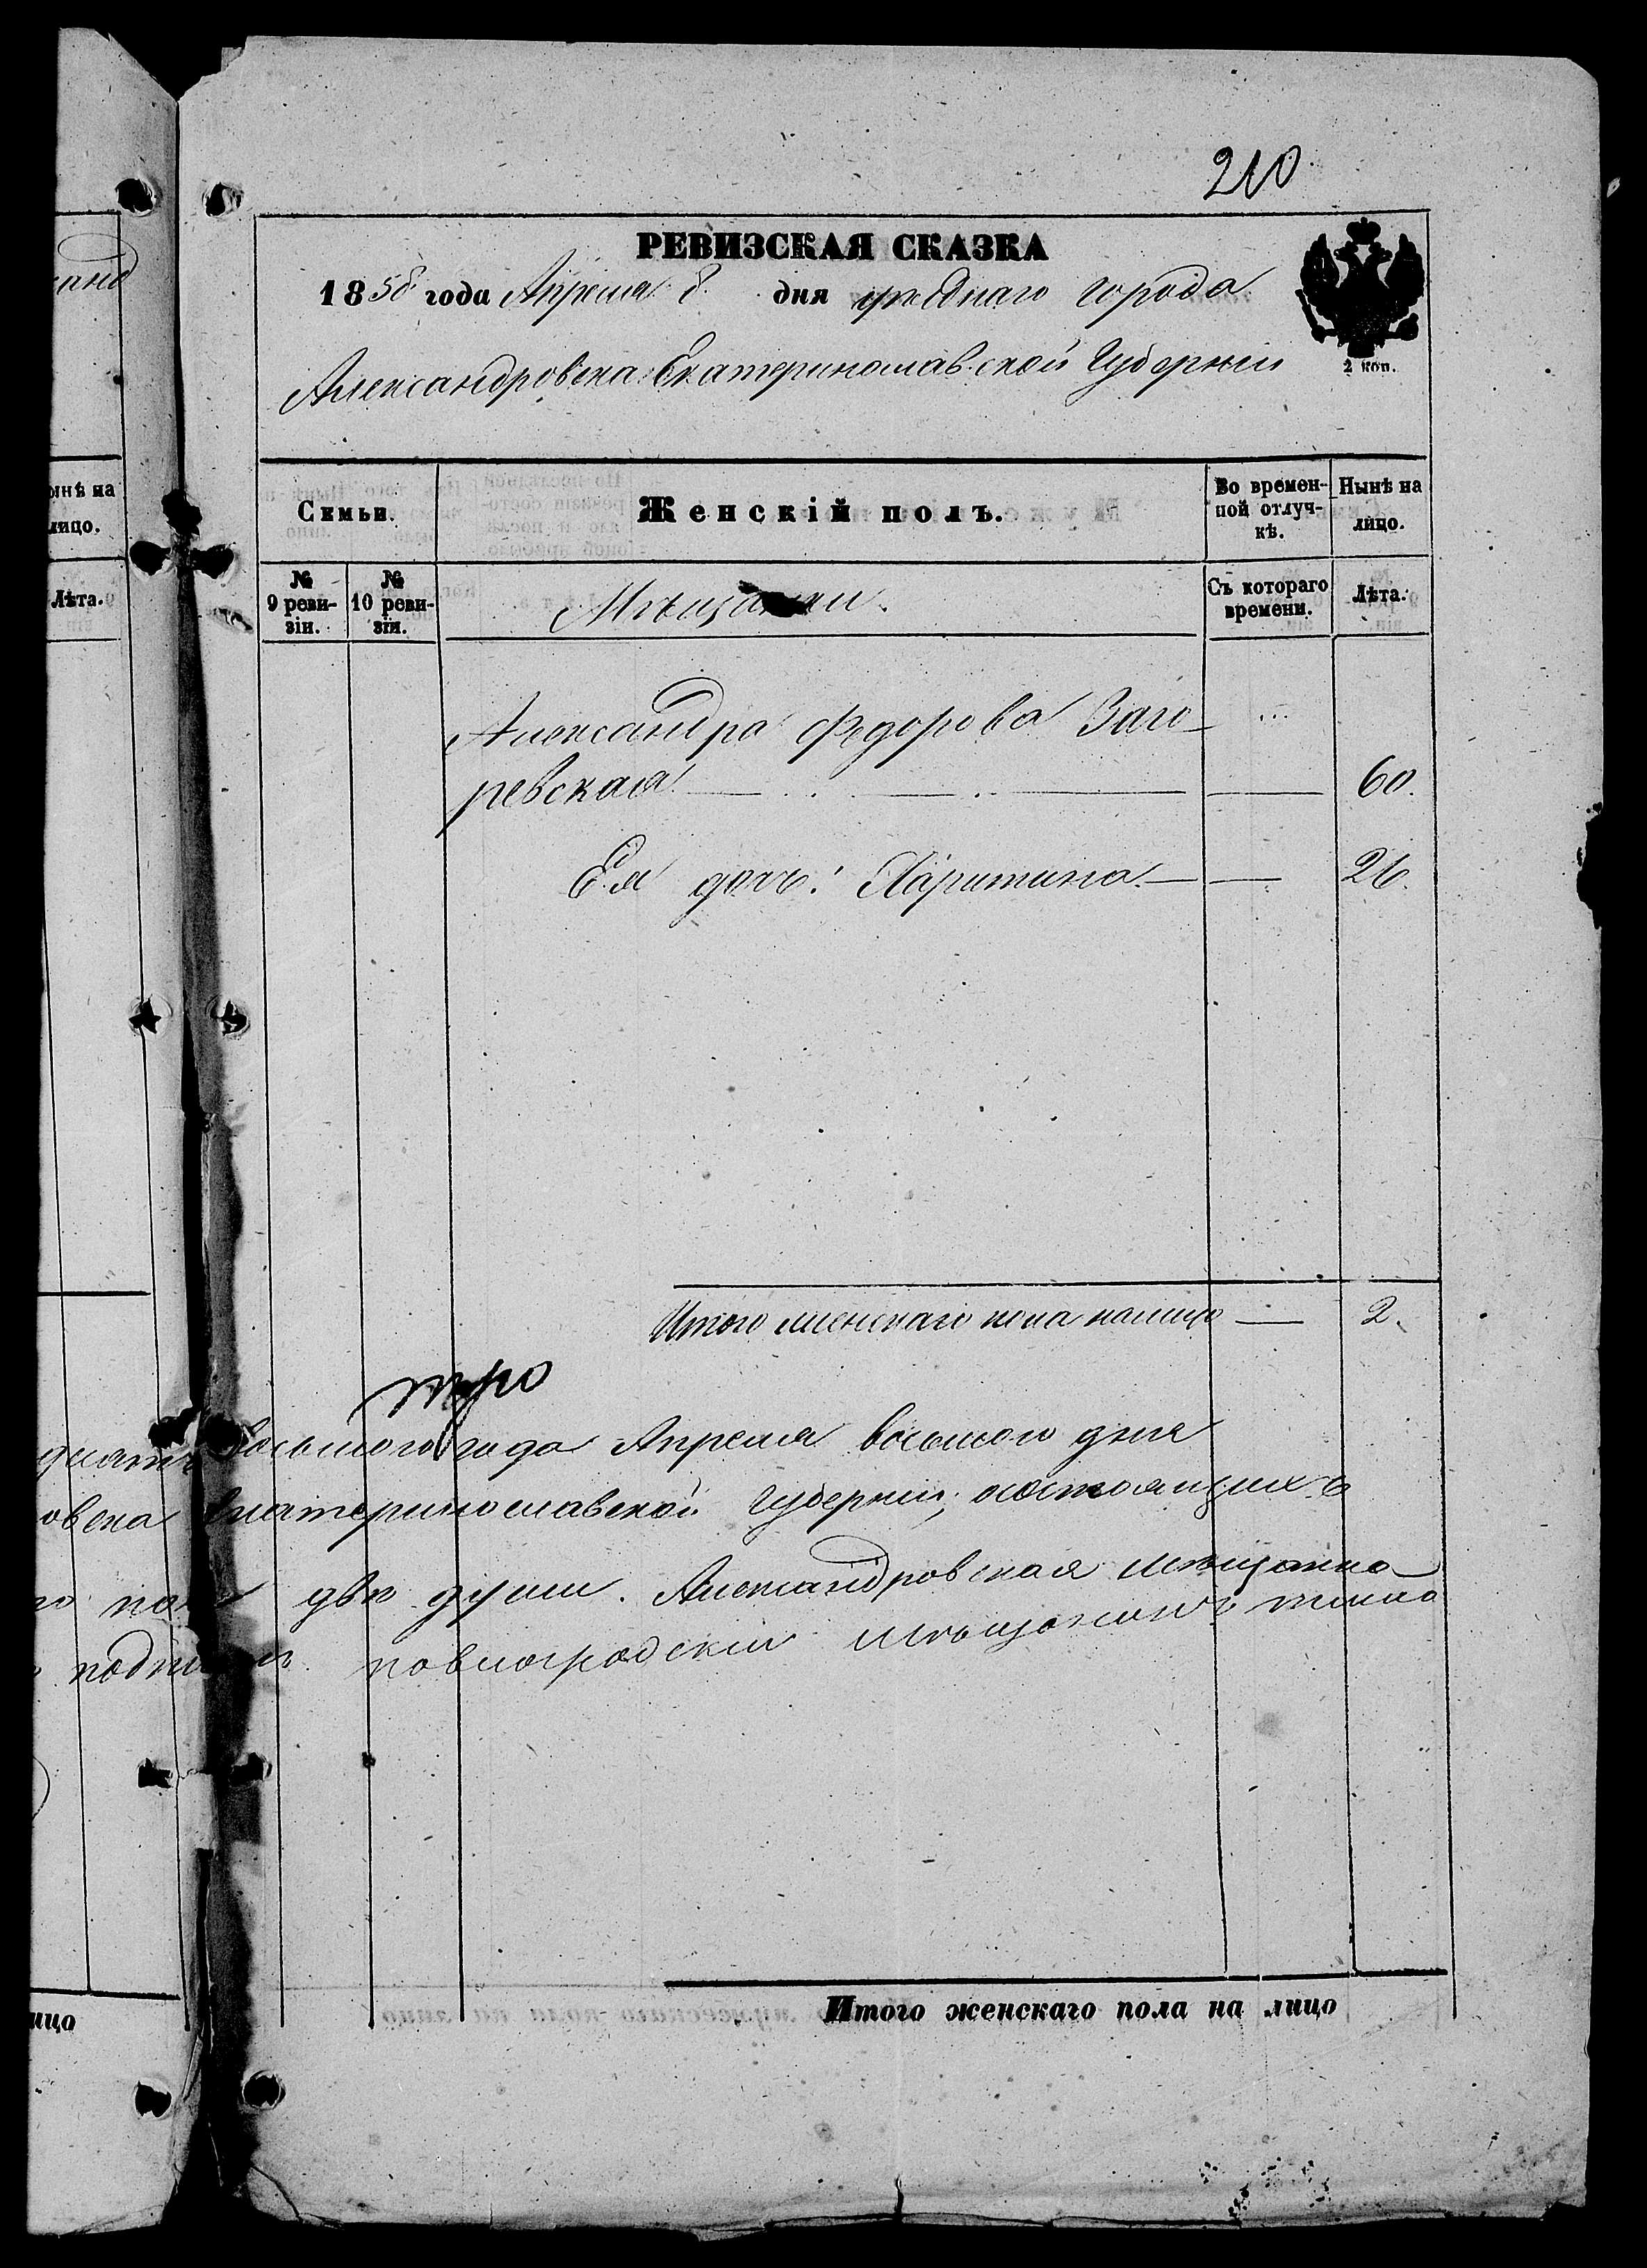 210
РЕВИЗСКАЯ СКАЗКА
1858 года Апреля 8. дня уѣзднаго города
Александровска Екатеринославской Губерніи
2 коп.
Семьи.
Женскій полъ.
Во времен-
ной отлуч-
кѣ.
Нынѣ на
лицо.
№
9 реви-
зіи.
№
10 реви-
зіи.
Мѣщанки.
Съ котораго
времени.
Лѣта.
Александра Федорова Заго-
ревская 60.
Ея дочь: Харитина 26.
Итого женскаго пола налицо 2.
восьмого года Апреля восьмого дня
овска Екатеринославской Губерніи, состоящихъ
две души. Александровская мѣщанка
павлоградскій мѣщанинъ
Итого женскаго пола на лицо
анд
ынѣ на
лицо.
Лѣта.
ицо